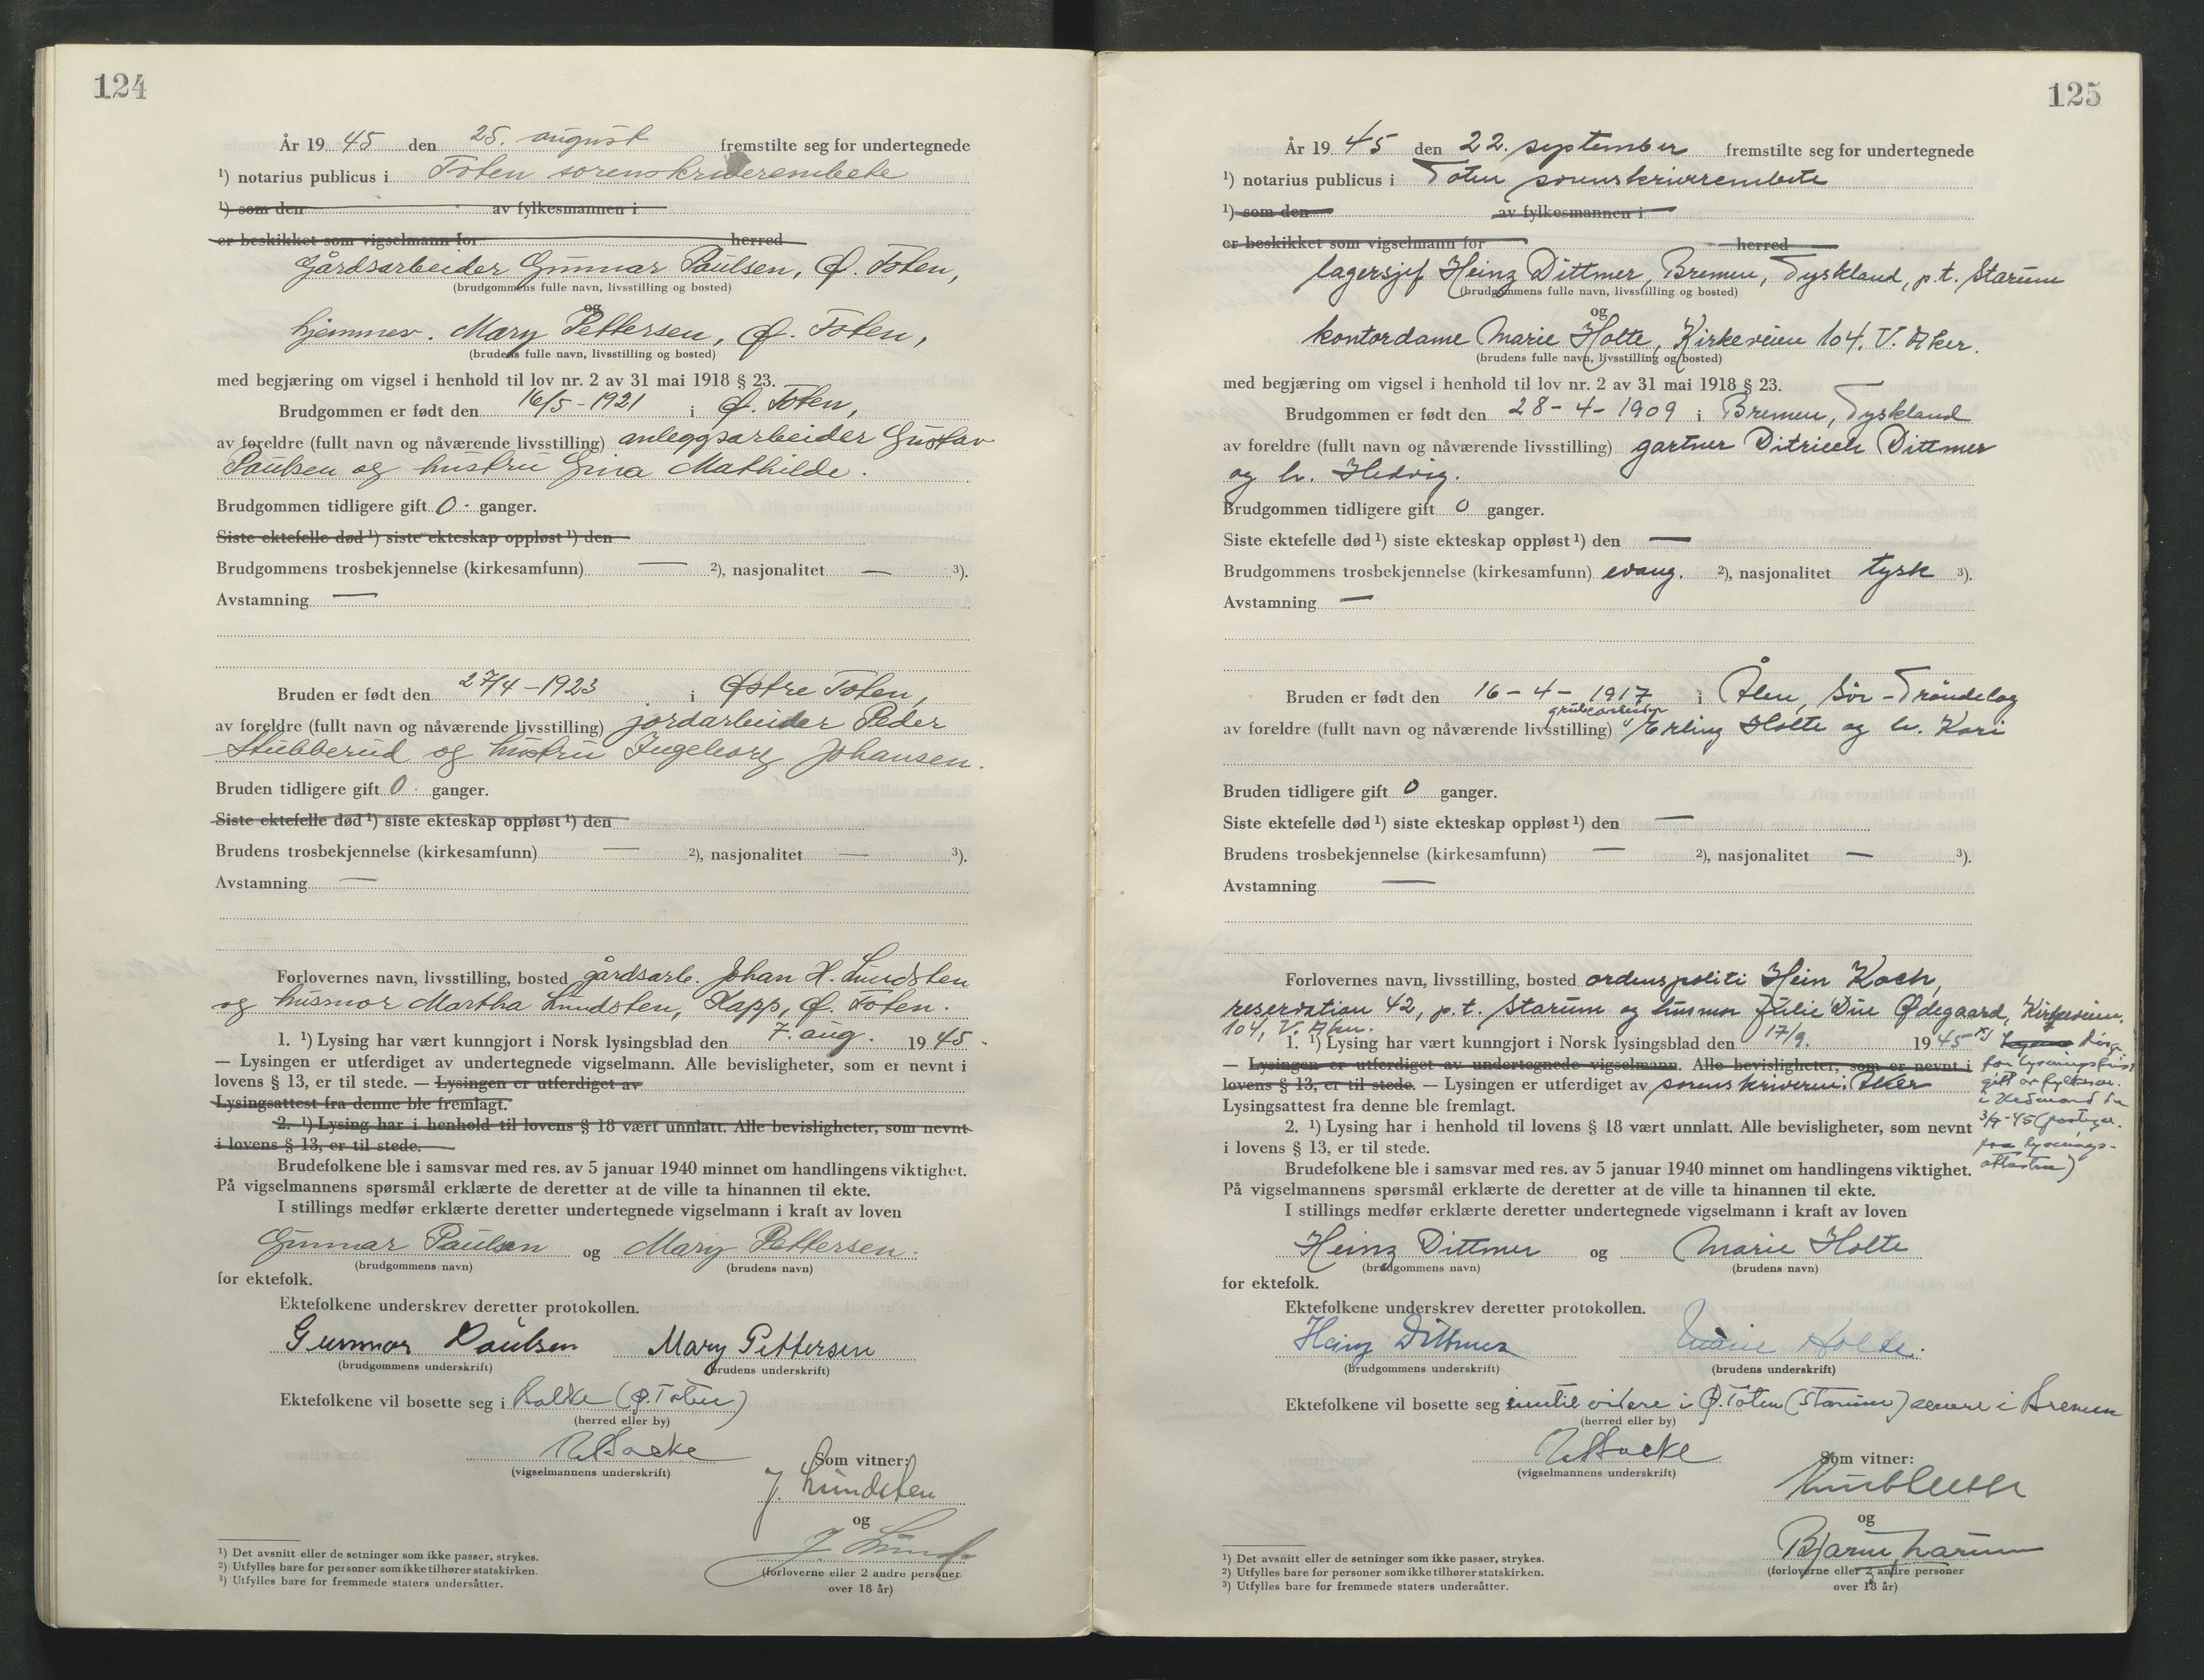 124
År 19 45 den 25. august fremstilte seg for undertegnede
¹) notarius publicus i Toten sorenskriverembete
¹) som den av fylkesmannen i
er beskikket som vigselmann for herred
Gårdsarbeider Gunnar Paulsen, Ø. Toten,
(brudgommens fulle navn, livsstilling og bosted)
og
hjemmev. Mary Pettersen, Ø. Toten,
(brudens fulle navn, livsstilling og bosted)
med begjæring om vigsel i henhold til lov nr. 2 av 31 mai 1918 § 23.
Brudgommen er født den 16/5-1921 i Ø. Toten,
av foreldre (fullt navn og nåværende livsstilling) anleggsarbeider Gustav
Paulsen og hustru Gina Mathilde.
Brudgommen tidligere gift 0 ganger.
Siste ektefelle død ¹) siste ekteskap oppløst ¹) den
Brudgommens trosbekjennelse (kirkesamfunn) — ²), nasjonalitet — ³).
Avstamning —
Bruden er født den 27/4-1923 i Østre Toten,
av foreldre (fullt navn og nåværende livsstilling) jordarbeider Peder
Stubberud og hustru Ingeborg Johansen.
Bruden tidligere gift 0 ganger.
Siste ektefelle død ¹) siste ekteskap oppløst ¹) den
Brudens trosbekjennelse (kirkesamfunn) — ²), nasjonalitet — ³).
Avstamning —
Forlovernes navn, livsstilling, bosted gårdsarb. Johan H. Lundsten
og husmor Martha Lundsten, Kapp, Ø. Toten.
1. ¹) Lysing har vært kunngjort i Norsk lysingsblad den 7. aug. 19 45
— Lysingen er utferdiget av undertegnede vigselmann. Alle bevisligheter, som er nevnt i
lovens § 13, er til stede. — Lysingen er utferdiget av
Lysingsattest fra denne ble fremlagt.
2. ¹) Lysing har i henhold til lovens § 18 vært unnlatt. Alle bevisligheter, som nevnt
i lovens § 13, er til stede.
Brudefolkene ble i samsvar med res. av 5 januar 1940 minnet om handlingens viktighet.
På vigselmannens spørsmål erklærte de deretter at de ville ta hinannen til ekte.
I stillings medfør erklærte deretter undertegnede vigselmann i kraft av loven
Gunnar Paulsen og Mary Pettersen
(brudgommens navn) (brudens navn)
for ektefolk.
Ektefolkene underskrev deretter protokollen.
Gunnar Paulsen Mary Pettersen
(brudgommens underskrift) (brudens underskrift)
Ektefolkene vil bosette seg i Balke (Ø. Toten)
(herred eller by)
(vigselmannens underskrift)
Som vitner:
J. Lundsten
og
(forloverne eller 2 andre personer
over 18 år)
¹) Det avsnitt eller de setninger som ikke passer, strykes.
²) Utfylles bare for personer som ikke tilhører statskirken.
³) Utfylles bare for fremmede staters undersåtter.
125
År 19 45 den 22. september fremstilte seg for undertegnede
¹) notarius publicus i Toten sorenskriverembete
¹) som den av fylkesmannen i
er beskikket som vigselmann for herred
lagersjef Heinz Dittmer, Bremen, Tyskland, p.t. Starum
(brudgommens fulle navn, livsstilling og bosted)
og
kontordame Marie Holte, Kirkeveien 104. V. Aker.
(brudens fulle navn, livsstilling og bosted)
med begjæring om vigsel i henhold til lov nr. 2 av 31 mai 1918 § 23.
Brudgommen er født den 28-4-1909 i Bremen, Tyskland
av foreldre (fullt navn og nåværende livsstilling) gartner Ditrich Dittmer
og h. Hedvig.
Brudgommen tidligere gift 0 ganger.
Siste ektefelle død ¹) siste ekteskap oppløst ¹) den —
Brudgommens trosbekjennelse (kirkesamfunn) evang. ²), nasjonalitet tysk ³).
Avstamning —
Bruden er født den 16-4-1917 i Ålen, Sör-Tröndelag
grubearbeider
av foreldre (fullt navn og nåværende livsstilling) Erling Holte og h. Kari
Bruden tidligere gift 0 ganger.
Siste ektefelle død ¹) siste ekteskap oppløst ¹) den —
Brudens trosbekjennelse (kirkesamfunn) — ²), nasjonalitet — ³).
Avstamning —
Forlovernes navn, livsstilling, bosted ordenspoliti Hein Koch,
reservation 42, p.t. Starum og husmor Julie Due Ødegaard, Kirkeveien
104, V. Aker.
1. ¹) Lysing har vært kunngjort i Norsk lysingsblad den 17/9. 19 45 x)
— Lysingen er utferdiget av undertegnede vigselmann. Alle bevisligheter, som er nevnt i
lovens § 13, er til stede. — Lysingen er utferdiget av sorenskriveren i Aker
Lysingsattest fra denne ble fremlagt.
2. ¹) Lysing har i henhold til lovens § 18 vært unnlatt. Alle bevisligheter, som nevnt
i lovens § 13, er til stede.
for lysningsfrist
gitt av fylkesm.
i Hedmark den
fra lysnings-
attesten)
Brudefolkene ble i samsvar med res. av 5 januar 1940 minnet om handlingens viktighet.
På vigselmannens spørsmål erklærte de deretter at de ville ta hinannen til ekte.
I stillings medfør erklærte deretter undertegnede vigselmann i kraft av loven
Heinz Dittmer og Marie Holte
(brudgommens navn) (brudens navn)
for ektefolk.
Ektefolkene underskrev deretter protokollen.
Heinz Dittmer Marie Holte.
(brudgommens underskrift) (brudens underskrift)
Ektefolkene vil bosette seg inntil videre i Ø. Toten (Starum) senere i Bremen
(herred eller by)
(vigselmannens underskrift)
Som vitner:
og
Bjarne
(forloverne eller 2 andre personer
over 18 år)
¹) Det avsnitt eller de setninger som ikke passer, strykes.
²) Utfylles bare for personer som ikke tilhører statskirken.
³) Utfylles bare for fremmede staters undersåtter.